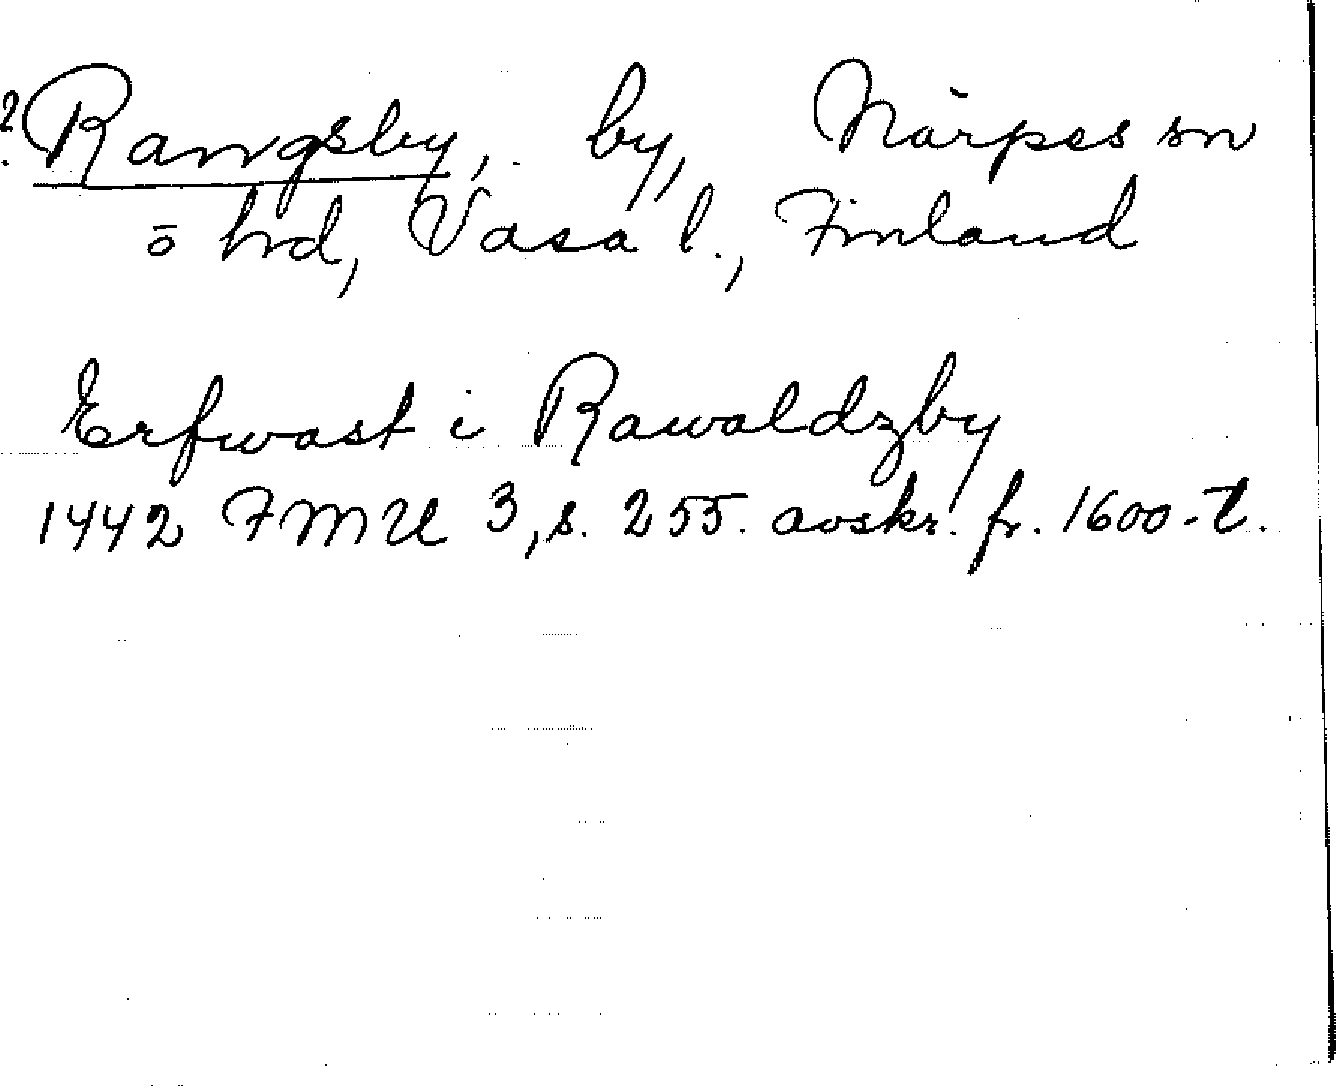 ? Rangsby, by, Närpes sn
o hd, Vasa l., Finland
Erfwast i Rawaldzby
1442 FMU 3, s. 255. avskr. fr. 1600-t.